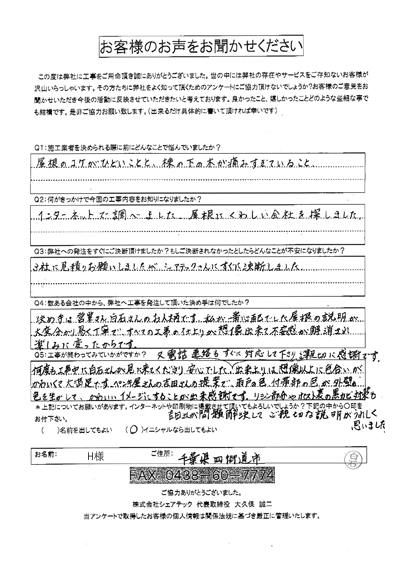 お客様のお声をお聞かせください
この度は弊社に工事をご用命頂き誠にありがとうございました。世の中には弊社の存在やサービスをご存知ないお客様が
沢山いらっしゃいます。その方たちに弊社をよく知って頂くためのアンケートにご協力頂けないでしょうか?お客様のご意見をお
聞かせいただき今後の活動に反映させていただきたいと考えております。良かったこと、嬉しかったことどのような些細な事で
も結構です。是非ご協力お願い致します。(出来るだけ具体的に書いて頂ければ幸いです)
Q1:施工業者を決められる際に前にどんなことで悩んでいましたか?
屋根のコケがひどいことと、棟の下の木が痛みすぎていること。
Q2:何がきっかけで今回の工事内容をお知りになりましたか?
インターネットで調べました。屋根にくわしい会社を探しました。
Q3:弊社への発注をすぐにご決断頂けましたか?もしご決断されなかったとしたらどんなことが不安になりましたか?
3社に見積りお願いしましたが、シェアテックさんにすぐに決断しました。
Q4:数ある会社の中から、弊社へ工事を発注して頂いた決め手は何でしたか?
決め手は営業さん、白石さんのお人柄です。私が一番心配でした屋根の説明が
大変分かり易く丁寧で、すべての工事の仕上りが想像出来て不安感が解消され
楽しみに変ったからです。
Q5:工事が終わってみていかがですか?
又電話連絡もすぐに対応して下さり、親切に感謝です。
何度も工事中に白石さんが見に来てくださり安心でした。出来上りは想像以上に色合いが
かわいくて大満足です。ペンキ屋さんの吉田さんの提案で、雨戸の色、付帯部の色が、外壁の
色を生かして、かわいいイメージにすることが出来感謝です。リシン部
*上記についてお願いがあります。インターネットや印刷物に掲載させて頂いてもよろしいでしょうか?下記の中から○印を
お付下さい。
問題解決してご親切な説明がうれしく
思いました
( )名前を出してもよい (○)イニシャルなら出してもよい
お名前: H様 ご住所: 千葉県四街道市
FAX 0438-60-7774
ご協力ありがとうございました。
株式会社シェアテック 代表取締役 大久保 誠二
当アンケートで取得したお客様の個人情報は関係法規に基づき厳正に管理いたします。